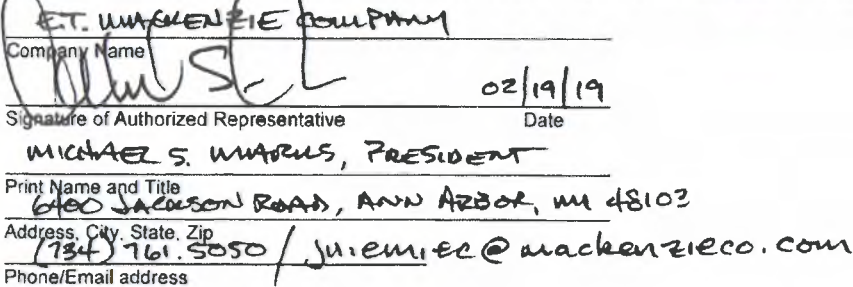 E.T. MACKENZIE COMPANY
Company Name
02/19/19
Signature of Authorized Representative Date
MICHAEL S. MARKS, PRESIDENT
Print Name and Title
JACKSON ROAD, ANN ARBOR, MI 48103
Address, City, State, Zip
(734) 761.5050 / @mackenzieco.com
Phone/Email address